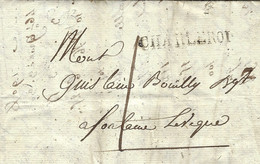 CHARLEROY
Mons
Guislain Bouilly Ngt
a fontaine Leveque